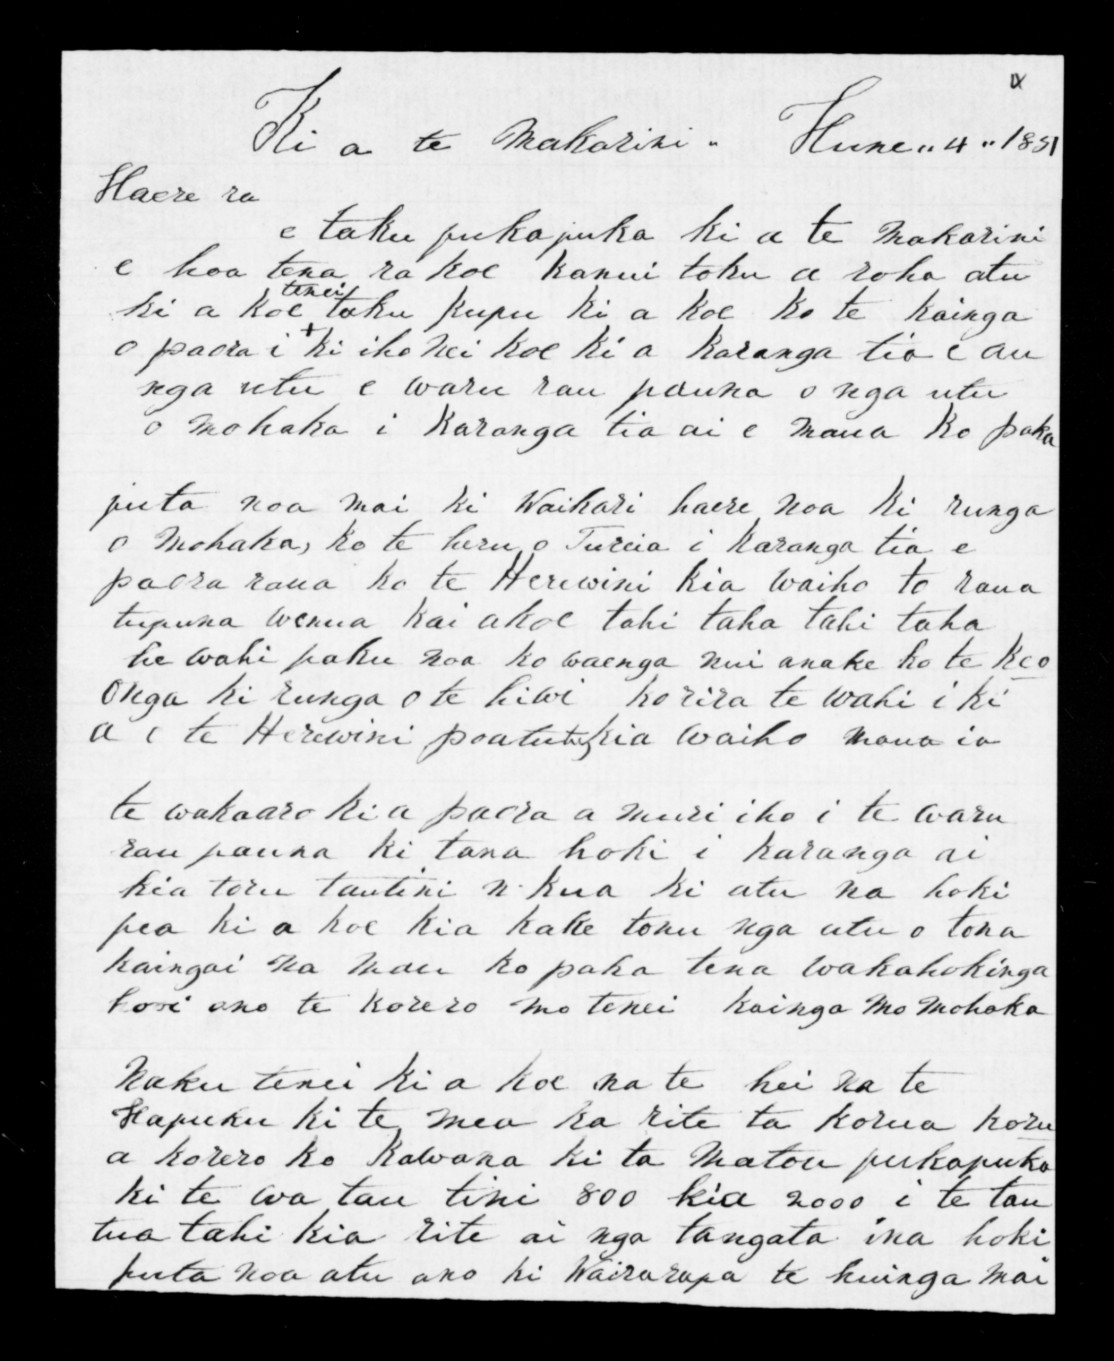 Ki a te Makarini " Hune " 4 " 1851
Haere ra
e taku pukapuka ki a te Makarini
e hoa tena ra koe kanui toku a roha atu
ki a koe tenei taku kupu ki a koe ko te kainga
o paora i ki iho nei koe ki a karanga tia e au
nga utu e waru rau pauna o nga utu
o Mohaka i karanga tia ai e maua ko paka
puta noa mai ki Waikari haere noa ki runga
o Mohaka, ko te huru o Tureia i karanga tia e
paora raua ko te Herewini kia waiho to raua
tupuna wenua kai akoe tahi taha tahi taha
he wahi paku noa ko waenga nui anake ko te keo
onga ki runga o te hiwi ko rira te wahi i ki
a e te Herewini poatutu kia waiho mana ia
te wakaaro ki a paora a muri iho i te waru
rau pauna ki tana hoki i karanga ai
kia toru tautini n kua ki atu na hoki
pea ki a koe kia kake tonu nga utu o tona
kaingai na mau ko paka tena wakahokinga
kori ano te korero mo tenei kainga mo Mohaka
Naku tenei ki a koe na te hei na te
Hapuku ki te mea ka rite ta korua koru
a korero ko Kawana ki ta Matou pukapuka
ki te wa tau tini 800 kia 2000 i te tau
tua tahi kia rite ai nga tangata ina hoki
puta noa atu ano ki Wairarapa te huinga mai